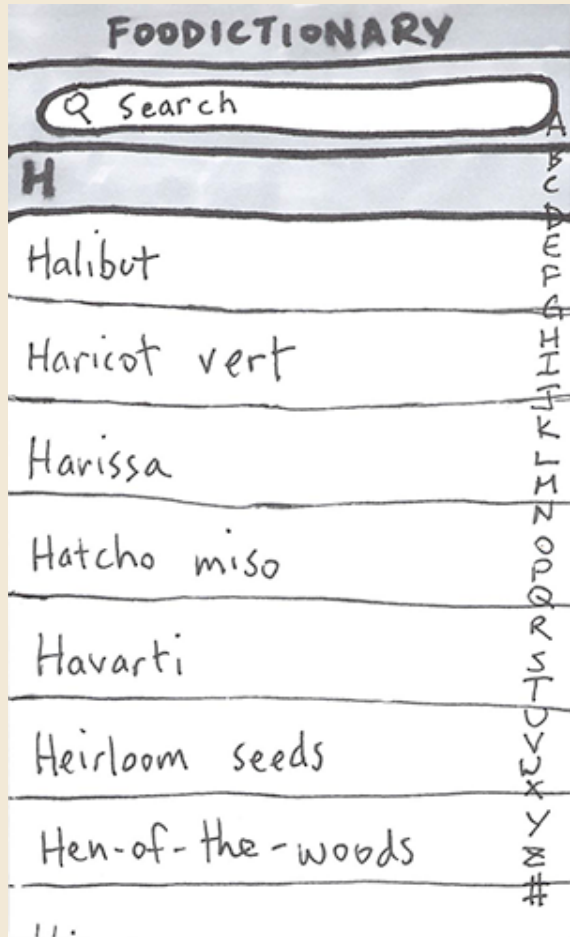 FOODICTIONARY
Search
H
Halibut
Haricot vert
Harissa
Hatcho miso
Havarti
Heirloom seeds
Hen-of-the-woods
A
B
C
D
E
F
G
H
I
J
K
L
M
N
O
P
Q
R
S
T
U
V
W
X
Y
Z
#